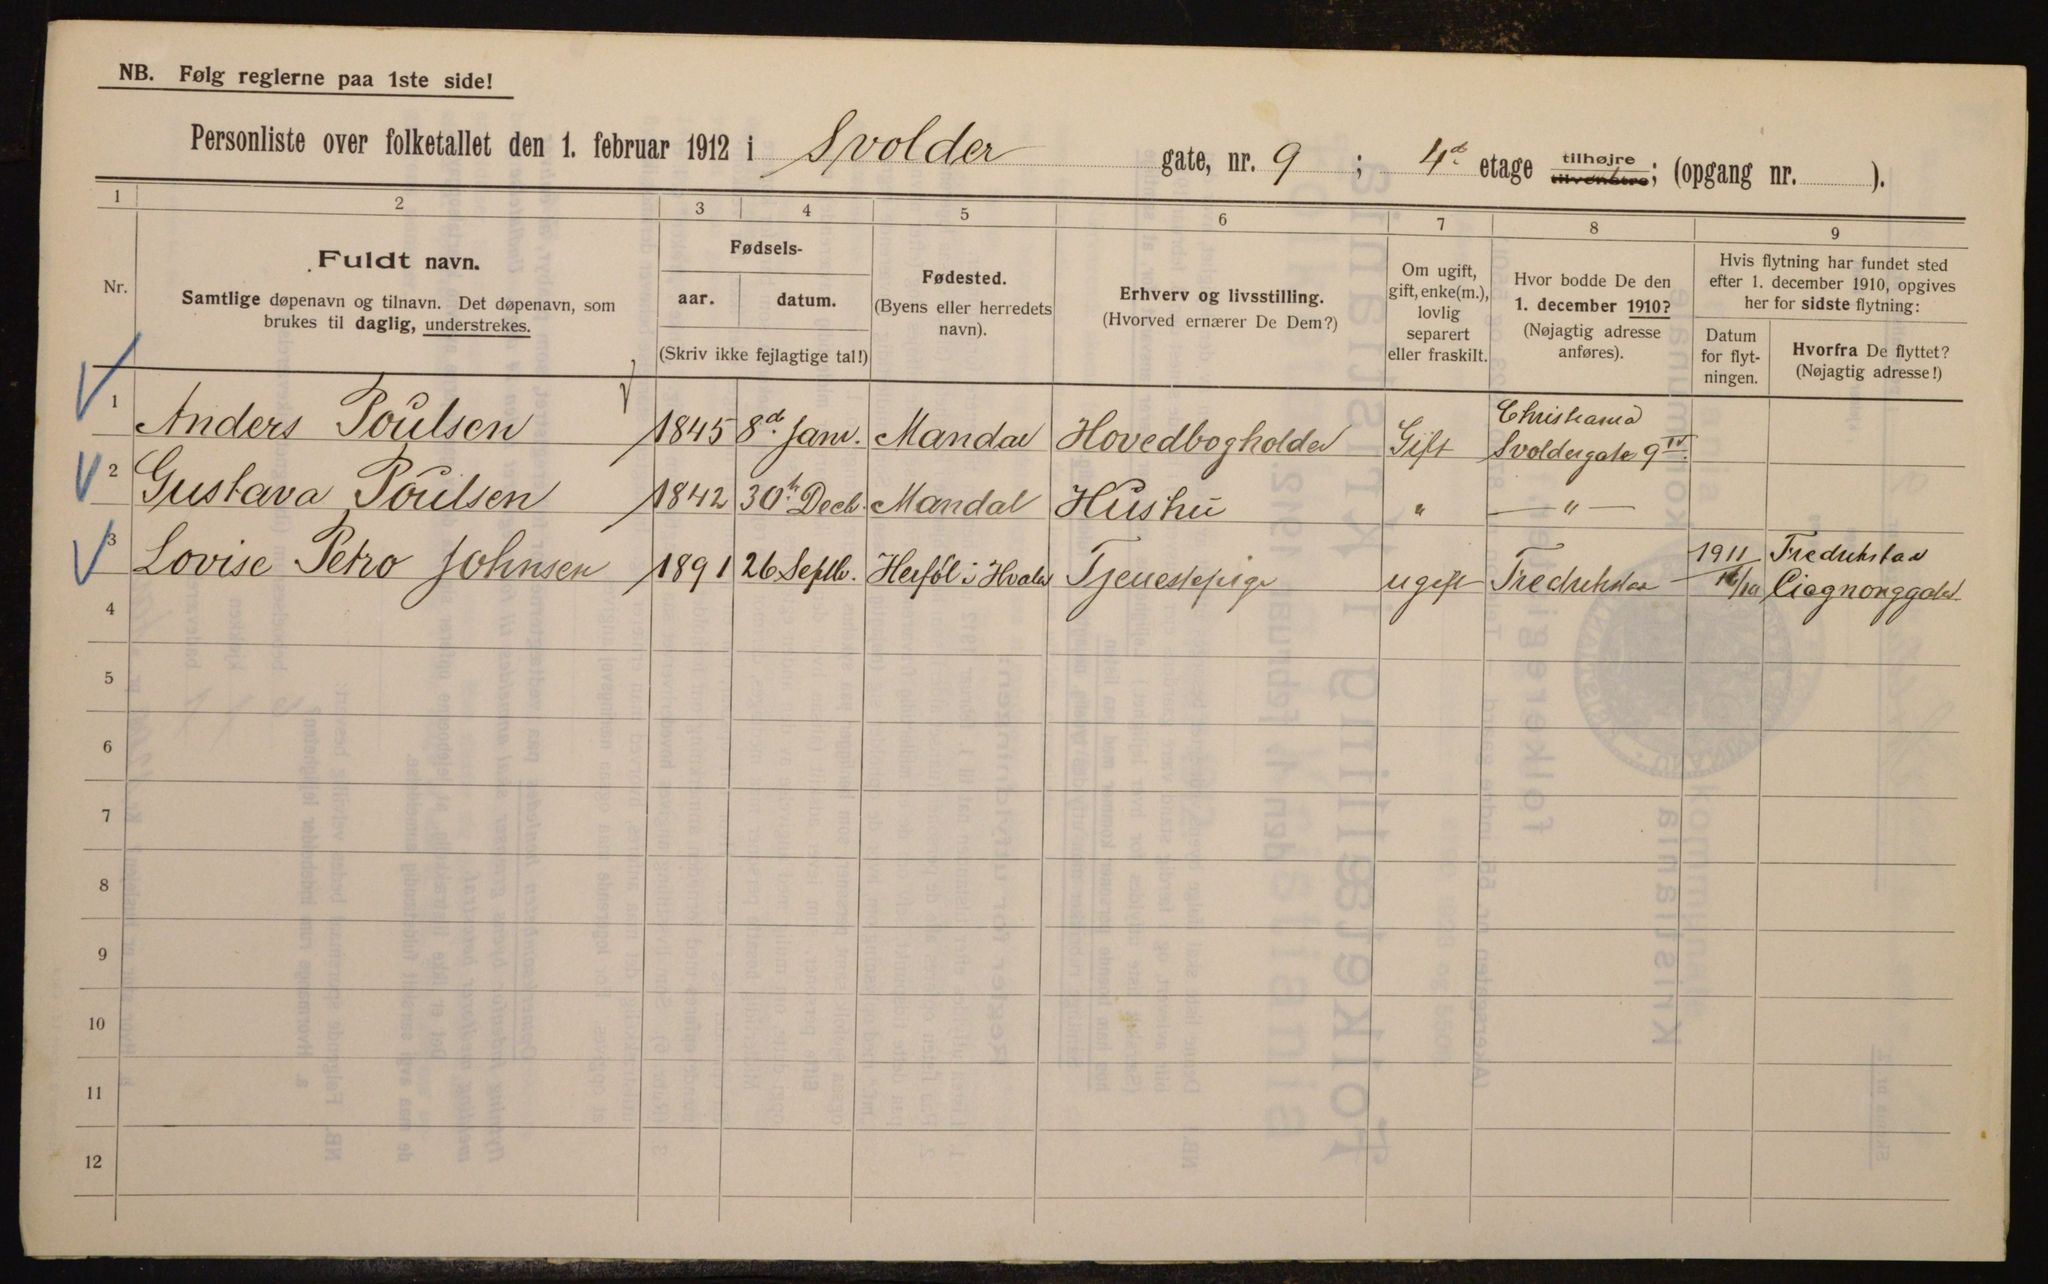 NB. Følg reglerne paa 1ste side!
Personliste over folketallet den 1. februar 1912 i Svolder gate, nr. 9 ; 4d. etage tilhøjre tilvenstre; (opgang nr. ).
1 2 3 4 5 6 7 8 9
Nr.
Fuldt navn.
Samtlige døpenavn og tilnavn. Det døpenavn, som
brukes til daglig, understrekes.
Fødsels-
aar. datum.
(Skriv ikke fejlagtige tal!)
Fødested.
(Byens eller herredets
navn).
Erhverv og livsstilling.
(Hvorved ernærer De Dem?)
Om ugift,
gift, enke(m.),
lovlig
separert
eller fraskilt.
Hvor bodde De den
1. december 1910?
(Nøjagtig adresse
anføres).
Hvis flytning har fundet sted
efter 1. december 1910, opgives
her for sidste flytning:
Datum
for flyt-
ningen.
Hvorfra De flyttet?
(Nøjagtig adresse!)
1 Anders Poulsen 1845 8d. Janr. Mandal Hovedbogholder Gift Christiania
Svoldergate 9 IV.
2 Gustava Poulsen 1842 30th Decb. Mandal Hustru " — " —
3 Lovise Petro Johnsen 1891 26 Septb. Herføl i Hvaler Tjenestepige ugift Fredrikstad 1911 Fredrikstad
4
5
6
7
8
9
10
11
12